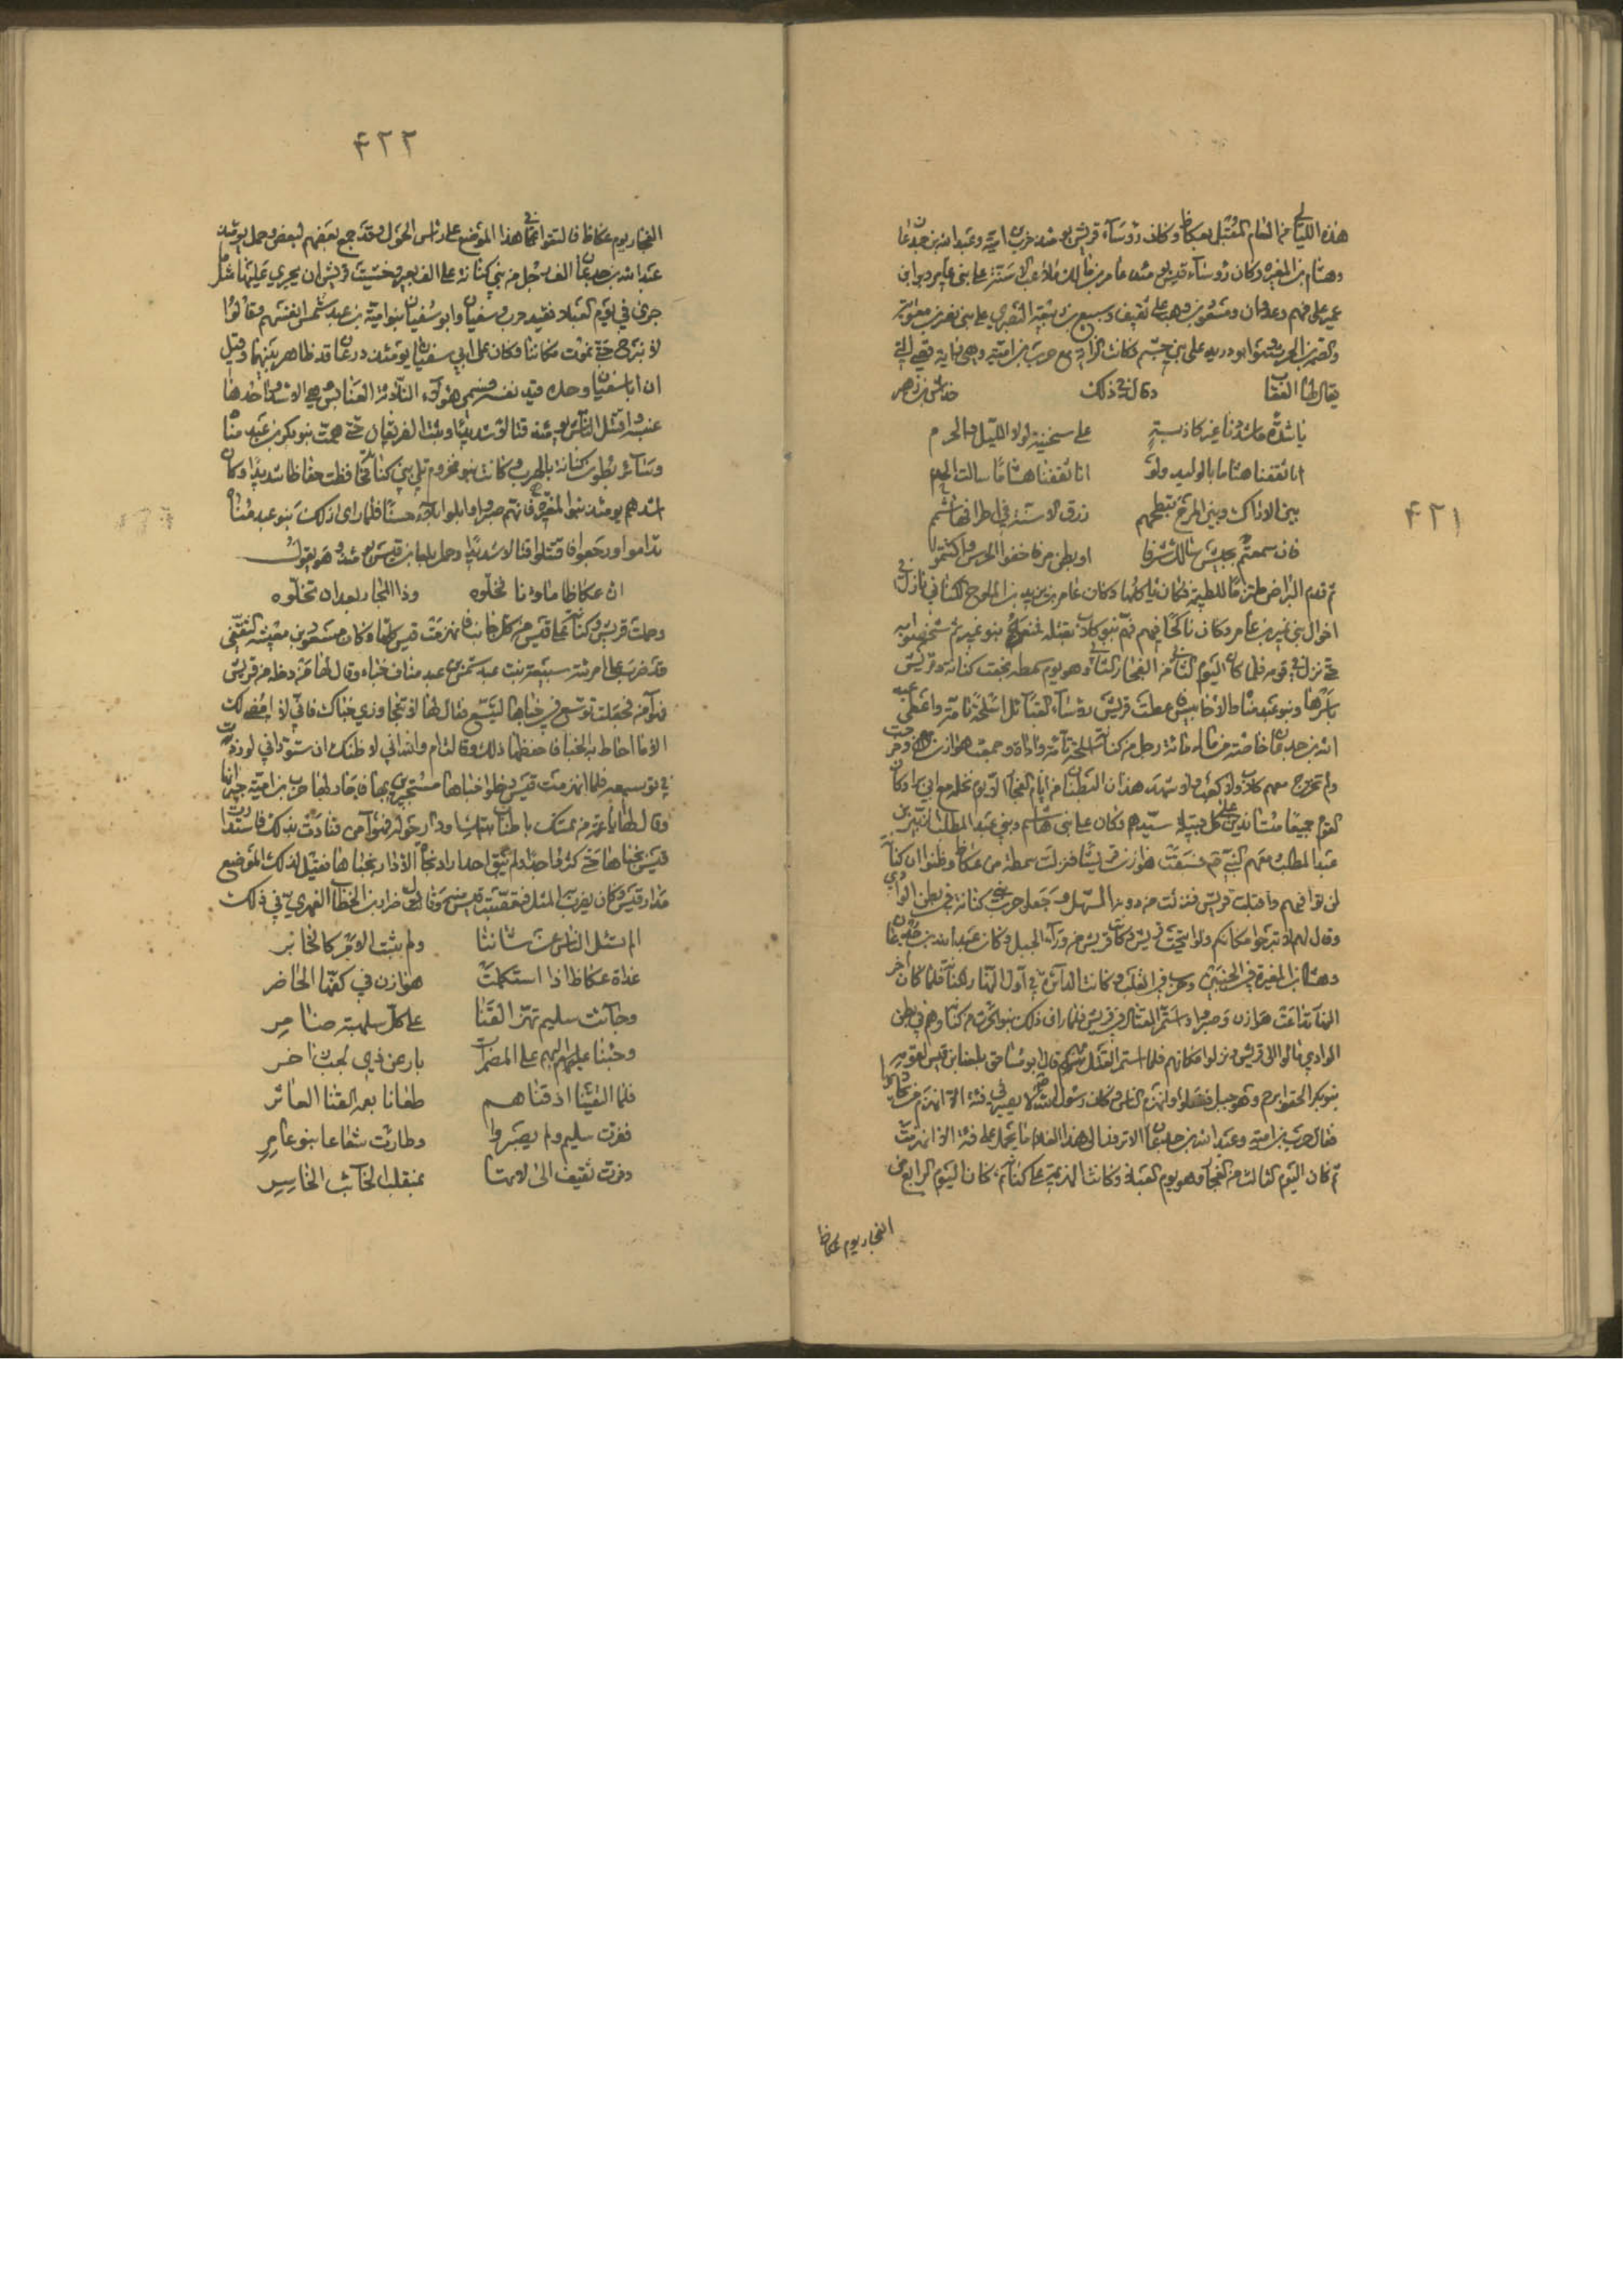 ٤٢١
هذه الليالي من العام المقبل بعكاظ وكان رؤسآء قريش يومئذ حرب بن امية وعبد الله بن جدعان
وهشام بن المغيره وكان رؤسآء قيس يومئذ عامر بن مالك ملاعب الاسنة على بني عامر
على فهم وعدوان ومسعود على ثقيف وسبيع بن ربيعة النصري على بني نصر بن معوية
والصمة بن الحرث وهو ابو دريد على بني جشم وكانت الراية مع حرب بن امية وهي راية قصي التي
يقال لها العقاب وقال في ذلك خداش بن زهير
يا شدة ما شددنا غير كاذبة على سخينة لولا الليل والحرم
اذ ثقفنا هشاما بالوليد ولو انا ثقفنا هشاما سالت الجذم
بين الاراك وبين المرج تبطحهم زرق الاسنة في اطرافها شم
فان سمعتم بجيش سالك شرفا او بطن مر فاخفوا الجرس واكتتموا
ثم قدم البراض للطيمة فكان ياكلها وكان عامر بن يزيد بن الملوح الكناني نازلا في
اخوال بني نمير بن عامر وكان ناكحا فيهم فهم بنو كلاب بقتله بنو نمير ثم شخصوا به
حتى نزل في قومه فلما كان اليوم الثاني من الفجار الثاني وهو يوم سمطه كنانة وقريش
باسرها وبنو عبد مناة والاحابيش واعطت قريش رؤسآء القبائل اسلحة تامة واعطى عبد
الله بن جدعان خاصة من ماله مائة رجل من كنانة اسلحة تامة واداة وجمعت هوازن وخرجت
ولم تخرج معهم كلاب ولا كعب ولا شهدت هذان البطنان من ايام الفجار الا يوم نخلة مع ابي برا وكان
القوم جميعا متساندين على كل قبيلة سيدهم فكان على بني هاشم وبني عبد المطلب الزبير بن
عبد المطلب معهم النبي فسبقت هوازن قريشا فنزلت سمطه من عكاظ وظنوا ان كنانة
لن توافيهم واقبلت قريش فنزلت من دون المسهل وجعل حرب بني كنانة في بطن الوادي
وقال لهم لا تبرحوا مكانكم ولو قريش فكانت قريش من ورآء الجبل وكان عبد الله بن جدعان
وهشام بن المغيرة في الجنبتين وحرب في القلب وكانت الدائرة في اول النهار لكنانة فلما كان اخر
النهار تداعت هوازن وصبروا واستحر القتل في قريش فلما راى ذلك بنو الحرث من كنانة وهم في بطن
الوادي مالوا الى قريش وتركوا مكانهم فلما استحر القتل بهم قال ابو مساحق بلعا بن قيس لقومه
الحقوا برخم وهو جبل ففعلوا وانهزم الناس وكان رسول الله لا يصير في فئة الا انهزم من يحاذيها
فقال حرب بن امية وعبد الله بن جدعان الا ترون الى هذا الغلام ما يحمل على فئة الا انهزمت
ثم كان اليوم الثالث من الفجار وهو يوم العبلاء وكانت الهزيمة على كنانة ثم كان اليوم الرابع من
الفجار يوم عكاظ
٤٢٢
الفجار يوم عكاظ فالتقوا في هذا الموضع على راس الحول وقد جمع بعضهم لبعض وحمل يومئذ
عبد الله بن جدعان الف رجل من بني كنانة على الف بعير وخشيت قريش ان يجري عليها مثل ما
جرى في يوم العبلاء فقيد حرب وسفيان وابو سفيان بنو امية بن عبد شمس انفسهم وقالوا
لا نبرح حتى نموت مكاننا وكان على ابي سفيان يومئذ درعان قد ظاهر بينهما وقيل
ان ابا سفيان وحده قيد نفسه فسمي هؤلاء الثلاثة العنابس وهي الاسد واحدها
عنبسه واقتتل الناس يومئذ قتالا شديدا وثبت الفريقان حتى همت بنو بكر بن عبد مناة
وسائر بطون كنانة بالهرب وكانت بنو مخزوم تلي بني كنانة فحافظت حفاظا شديدا وكان
اشدهم يومئذ بنو المغيرة فانهم صبروا وابلوا بلاء حسنا فلما راى ذلك بنو عبد مناة
تدامروا ورجعوا فاقتتلوا قتالا شديدا وحمل بلعا بن قيس يومئذ وهو يقول
ان عكاظا ماؤنا فخلوه وذا المجاز بعد ان تخلوه
وحملت قريش وكنانة على قيس من كل جانب فانهزمت قيس كلها وكان مسعود بن معتب الثقفي
قد ضرب على امرئته سبيعة بنت عبد شمس بن عبد مناف خباء وقال لها من دخله من قريش
فهو آمن فجعلت توسع في خباها ليتسع فقال لها لا تتجاوزي خباك فاني لا امضي لك
الا من احاط به الخبا فاحفظها ذلك وقالت اما والله اني لاظنك ان ستود اني لو زدت
في توسيعه فلما انهزمت قيس دخلوا خباها مستجيرين بها فاجار لها حرب بن امية جيرانها
وقال لها يا عمة من تمسك باطناب بيتك او دار حوله فهو آمن فنادت بذلك فاستدارت
قيس بخباها حتى كثروا جدا ولم يبق احدا راد نجاة الا دار بخباها فقيل لذلك الموضع
مدار قيس وكان يضرب به المثل فتغضب قيس منه وقال ضرار بن الخطاب الفهري في ذلك
الم تسئل الناس عن شاننا ولم يثبت الامر كالخابر
غداة عكاظ اذا استكملت هوازن في كفها الحاضر
وجآئت سليم تهز القنا على كل سلهبة ضامر
وجئنا اليهم على المضمرات بارعن ذي لجب زاخر
فلما التقينا اذقناهم طعانا بسمر القنا العائر
ففرت سليم ولم يصبروا وطارت شعاعا بنو عامر
وفرت ثقيف الى لاتها بمنقلب الخائب الخاسر